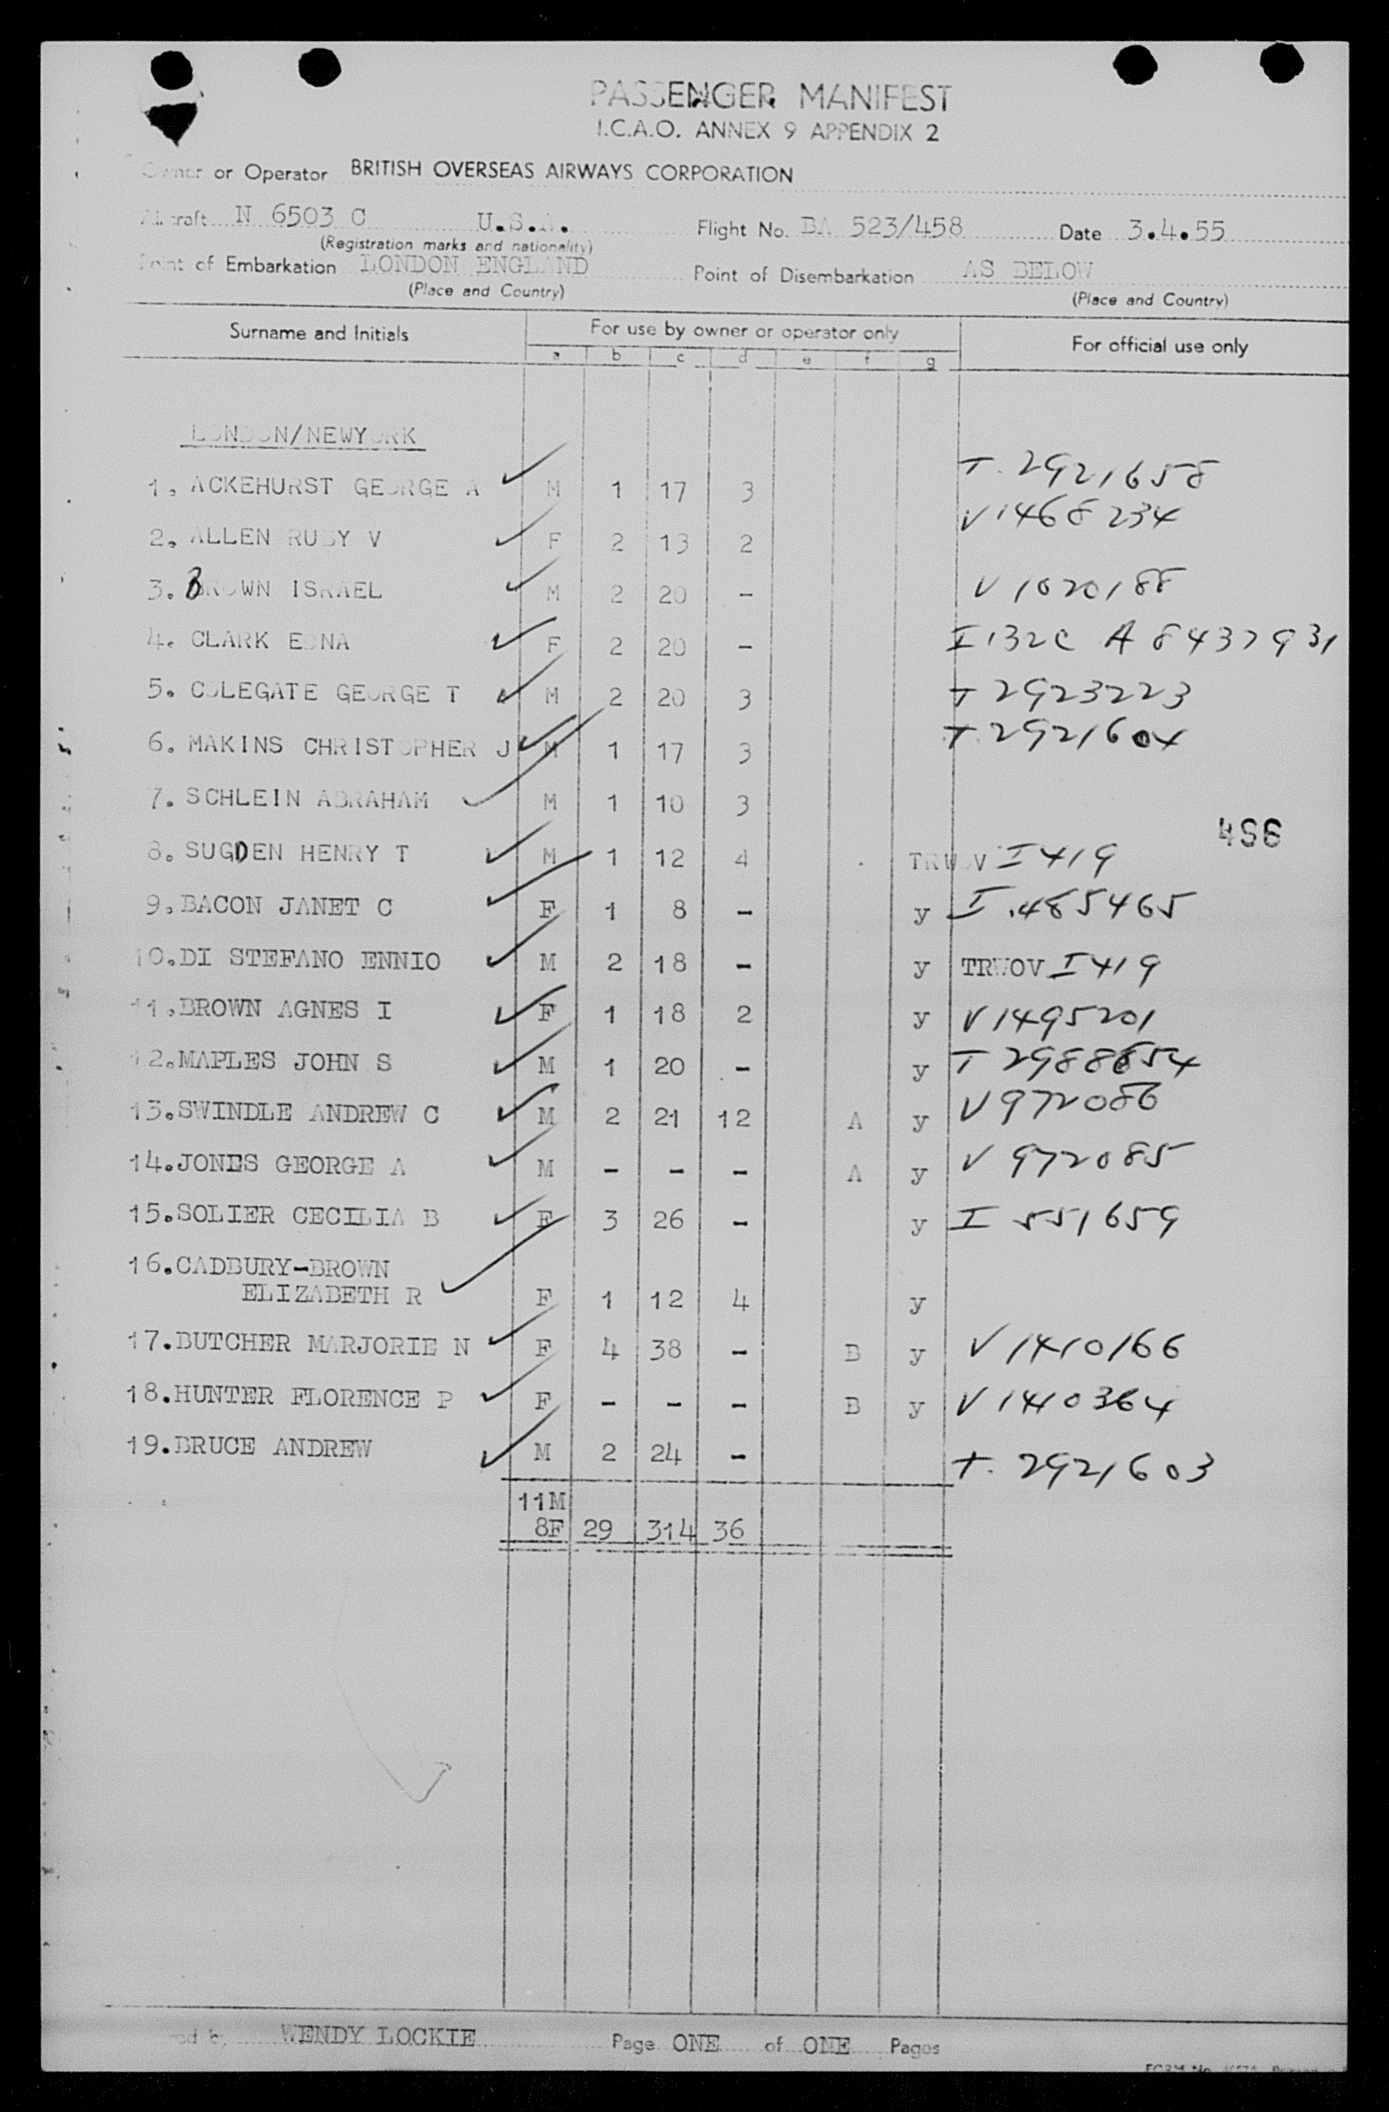 PASSENGER MANIFEST
I.C.A.O. ANNEX 9 APPENDIX 2
Owner or Operator BRITISH OVERSEAS AIRWAYS CORPORATION
Aircraft N 6503 C U.S.A. Flight No. BA 523/458 Date 3.4.55
(Registration marks and nationality)
Point of Embarkation LONDON ENGLAND Point of Disembarkation AS BELOW
(Place and Country) (Place and Country)
Surname and Initials For use by owner or operator only For official use only
a b c d e f g
LONDON/NEWYORK
1. ACKEHURST GEORGE A M 1 17 3 T. 2921658
2. ALLEN RUBY V F 2 13 2 V1468234
3. BROWN ISRAEL M 2 20 - V1020188
4. CLARK EDNA F 2 20 - I132C A8437931
5. COLEGATE GEORGE T M 2 20 3 T 2923223
6. MAKINS CHRISTOPHER J M 1 17 3 T. 2921604
7. SCHLEIN ABRAHAM M 1 10 3
496
8. SUGDEN HENRY T M 1 12 4 TRWOV I419
9. BACON JANET C F 1 8 - y I.485465
10.DI STEFANO ENNIO M 2 18 - y TRWOV I419
11.BROWN AGNES I F 1 18 2 y V1495201
12.MAPLES JOHN S M 1 20 - y T 2988654
13.SWINDLE ANDREW C M 2 21 12 A y V972086
14.JONES GEORGE A M - - - A y V 972085
15.SOLIER CECILIA B F 3 26 - y I 551659
16.CADBURY-BROWN
ELIZABETH R F 1 12 4 y
17.BUTCHER MARJORIE N F 4 38 - B y V1410166
18.HUNTER FLORENCE P F - - - B y V1410364
19.BRUCE ANDREW M 2 24 - T. 2921603
11M
8F 29 314 36
WENDY LOCKIE Page ONE of ONE Pages
FORM No.